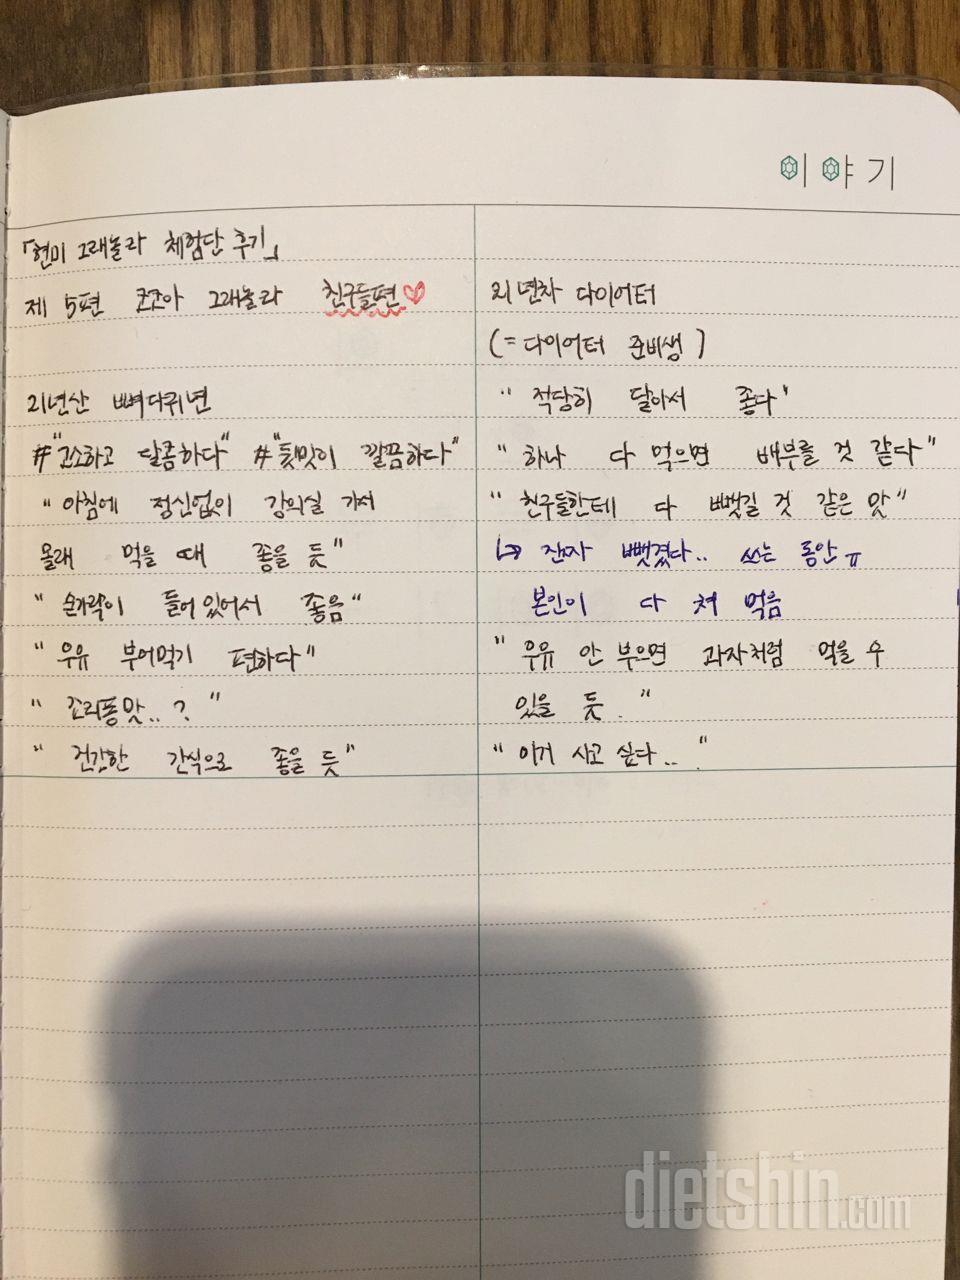 이야기
「현미 그래놀라 체험단 후기」
제 5편 코코아 그래놀라 친구들편♡
21년산 뼈다귀년
#"고소하고 달콤하다" #"뒷맛이 깔끔하다"
"아침에 정신없이 강의실 가서
몰래 먹을 때 좋을 듯"
"숟가락이 들어있어서 좋음"
"우유 부어먹기 편하다"
"죠리퐁맛..?"
"건강한 간식으로 좋을 듯"
21년차 다이어터
(=다이어터 준비생)
"적당히 달아서 좋다"
"하나 다 먹으면 배부를 것 같다"
"친구들한테 다 뺏길 것 같은 맛"
↳ 진짜 뺏겼다.. 쓰는 동안ㅠ
본인이 다 쳐 먹음
"우유 안 부으면 과자처럼 먹을 수
있을 듯."
"이거 사고 싶다.."
dietshin.com